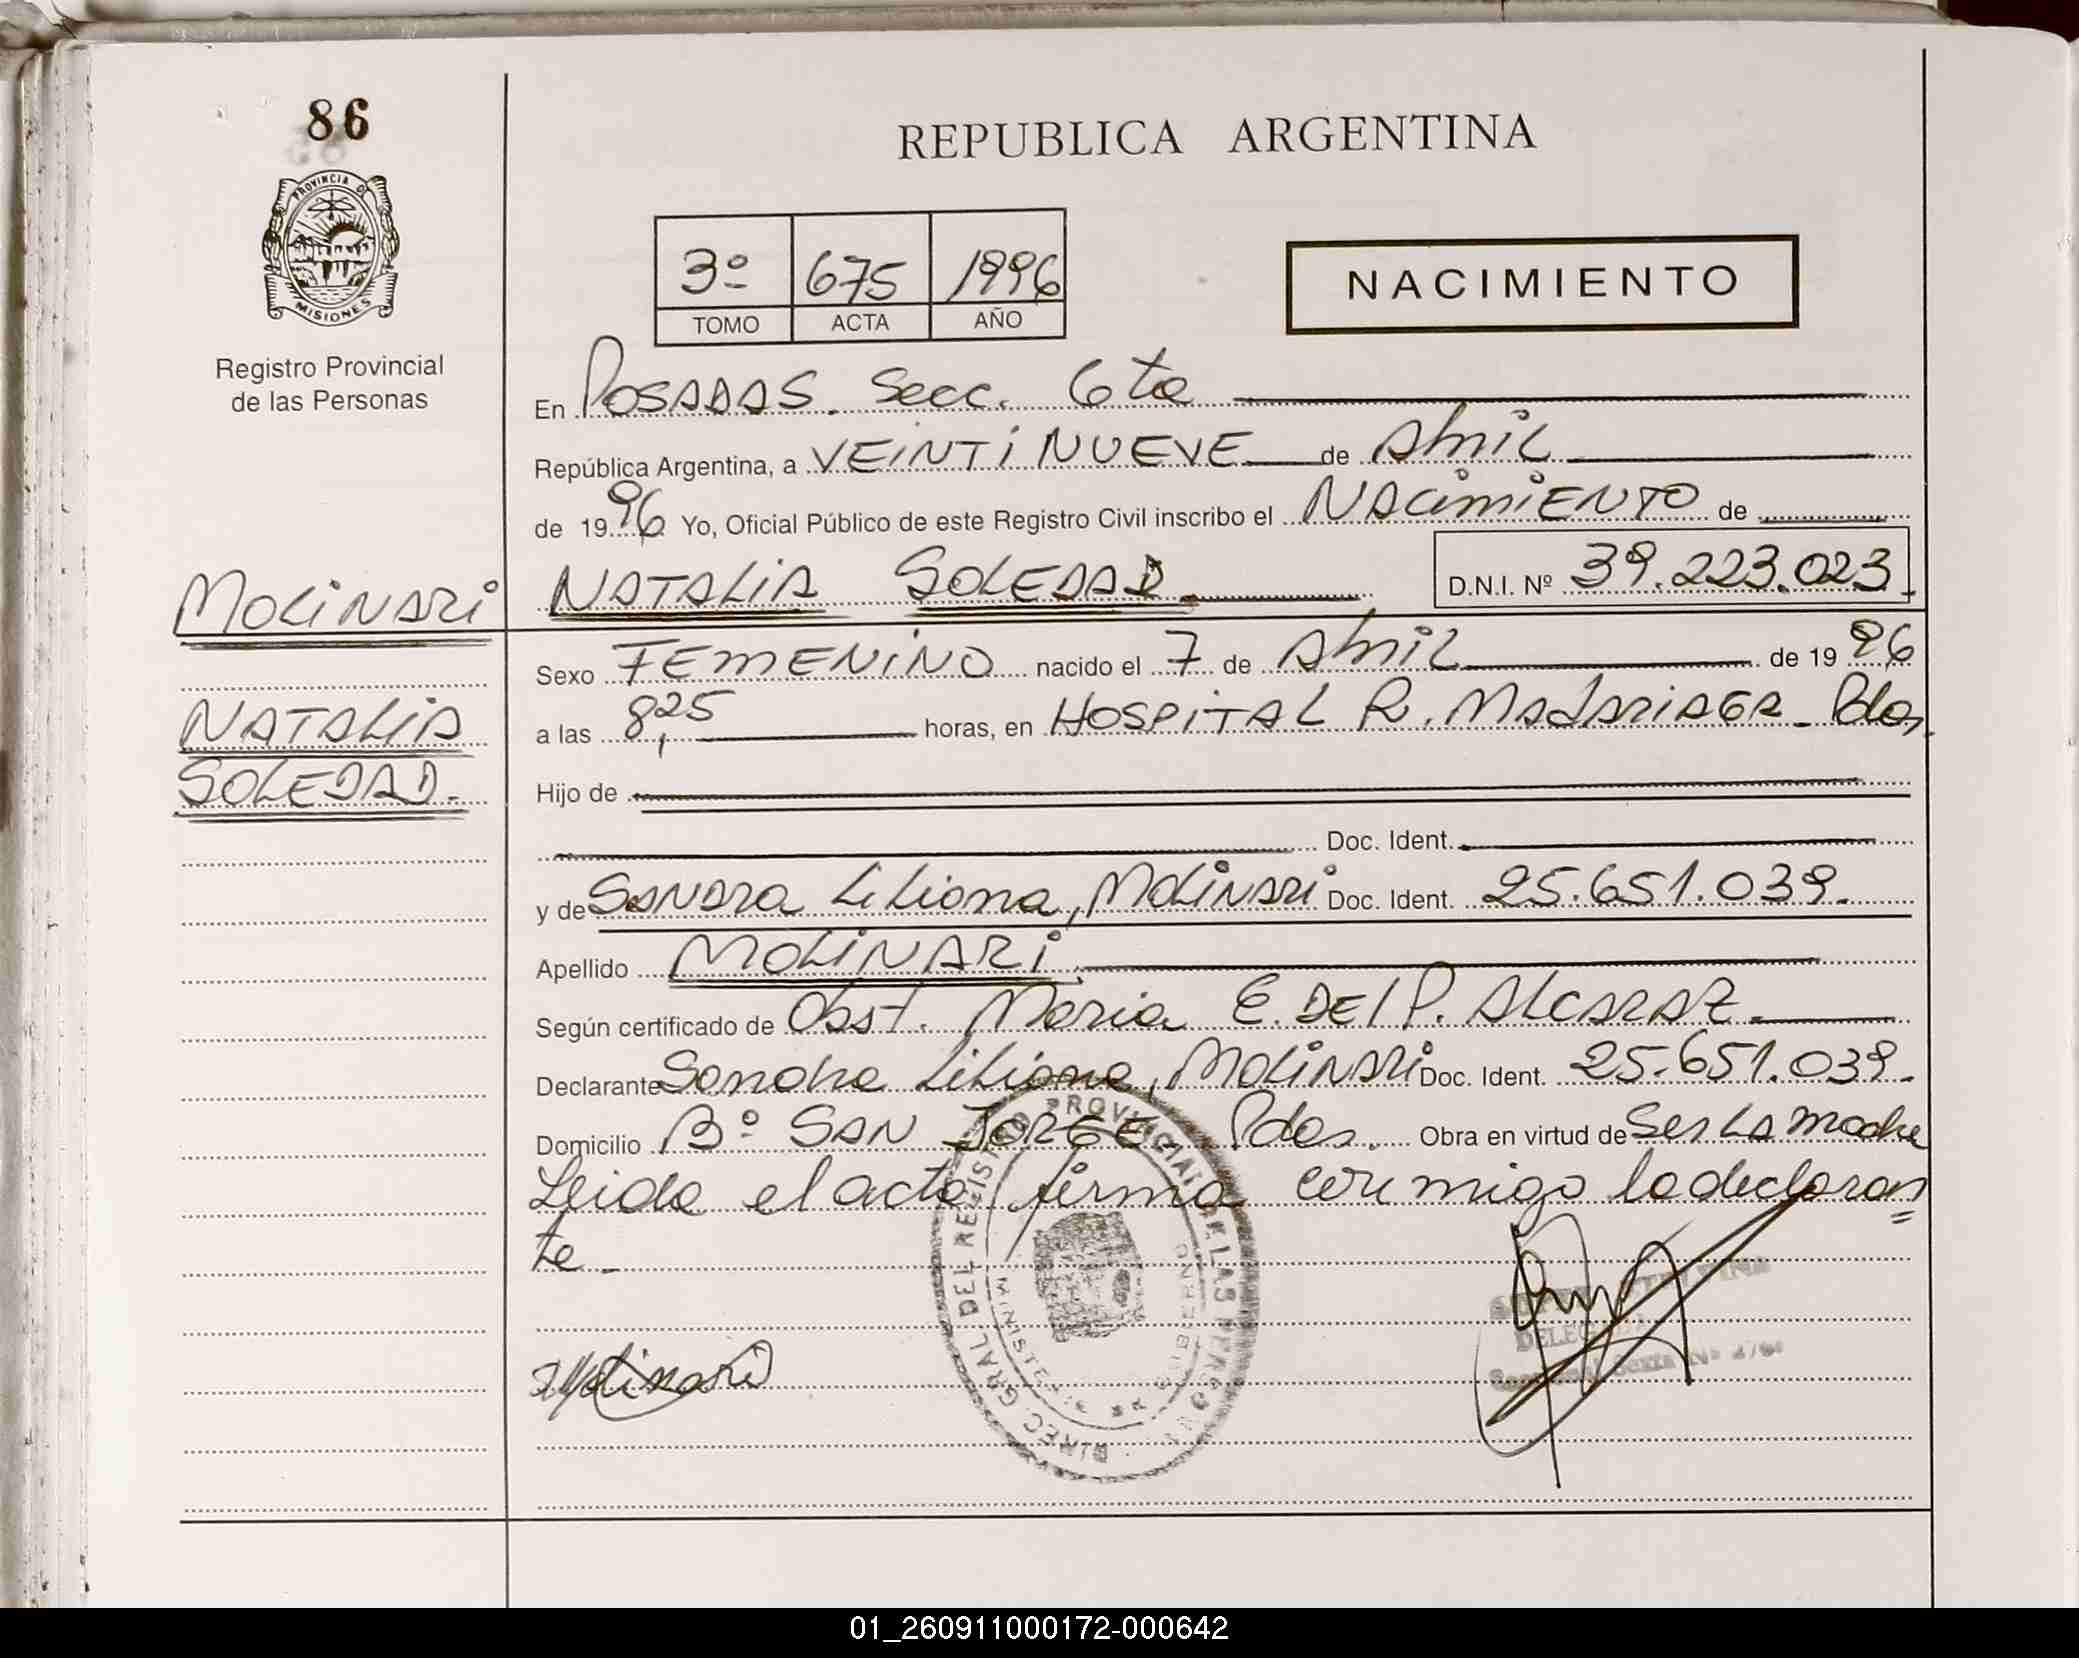 86
REPUBLICA ARGENTINA
PROVINCIA DE
MISIONES
3º 675 1996
TOMO ACTA AÑO
NACIMIENTO
Registro Provincial
de las Personas
En POSADAS. Secc. 6ta
República Argentina, a VEINTINUEVE de Abril
de 1996 Yo, Oficial Público de este Registro Civil inscribo el NACIMIENTO de
MOLINARI NATALIA SOLEDAD. D.N.I. Nº 39.223.023.
Sexo FEMENINO nacido el 7 de Abril de 1996
NATALIA a las 8,25 horas, en HOSPITAL R. MADARIAGA - Pdas.
SOLEDAD. Hijo de
Doc. Ident.
y de SANDRA Liliana, MOLINARI Doc. Ident. 25.651.039.
Apellido MOLINARI.
Según certificado de Obst. Maria E. DEL P. ALCARAZ.
Declarante Sandra Liliana, MOLINARI Doc. Ident. 25.651.039.
Domicilio Bº SAN JORGE. Pdas. Obra en virtud de Ser LA madre
Leida el acta firma conmigo la declaran=
te.
DIREC. GRAL DEL REGISTRO PROVINCIAL DE LAS PERSONAS
MINISTERIO DE GOBIERNO
Molinari
DELEG
Seccional Sexta Nº
01_260911000172-000642